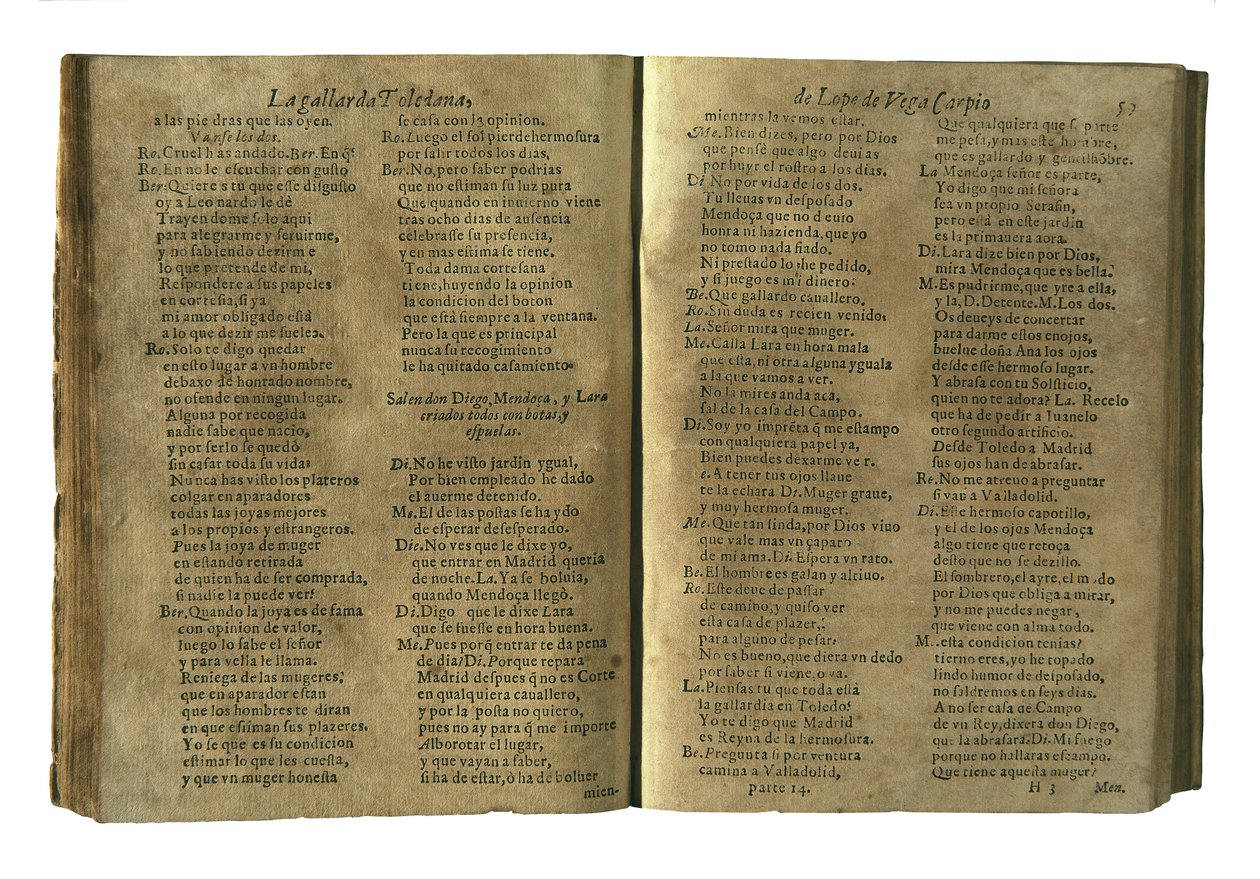 La gallarda Toledana,
a las pie dras que las oyen.
Vanse los dos.
Ro. Cruel has andado. Ber. En q̃?
Ro. En no le escuchar con gusto
Ber. Quieres tu que esse disgusto
oy a Leonardo le dè
Trayendome solo aqui
para alegrarme y seruirme,
y no sabiendo dezirme
lo que pretende de mi,
Respondere a sus papeles
en cortesia, si ya
mi amor obligado està
a lo que dezirme suele.
Ro. Solo te digo quedar
en esto lugar a vn hombre
debaxo de honrado nombre,
no ofende en ningun lugar.
Alguna por recogida
nadie sabe que nacio,
y por serlo se quedò
sin casar toda su vida?
Nunca has visto los plateros
colgar en aparadores
todas las joyas mejores
a los propios y estrangeros.
Pues la joya de muger
en estando retirada
de quien ha de ser comprada,
si nadie la puede ver?
Ber. Quando la joya es de fama
con opinion de valor,
luego lo sabe el señor
y para vella le llama.
Reniega de las mugeres,
que en aparador estan
que los hombres te diran
en que estiman sus plazeres.
Yo se que es su condicion
estimar lo que les cuesta,
y que vn muger honesta
se casa con la opinion.
Ro. Luego el sol pierde hermosura
por salir todos los dias,
Ber. No, pero saber podrias
que no estiman su luz pura
Que quando en inuierno viene
tras ocho dias de ausencia
celebrasse su presencia,
y en mas estima se tiene.
Toda dama cortesana
tiene, huyendo la opinion
la condicion del boton
que està siempre a la ventana.
Pero la que es principal
nunca su recogimiento
le ha quitado casamiento.
Salen don Diego, Mendoça, y Lara
criados todos con botas, y
espuelas.
Di. No he visto jardin ygual,
Por bien empleado he dado
el auerme detenido.
Me. El de las postas se ha ydo
de esperar desesperado.
Die. No ves que le dixe yo,
que entrar en Madrid queria
de noche. La. Ya se boluia,
quando Mendoça llegò.
Di. Digo que le dixe Lara
que se fuesse en hora buena.
Me. Pues porq̃ entrar te da pena
de dia? Di. Porque repara
Madrid despues q̃ no es Corte
en qualquiera cauallero,
y por la posta no quiero,
pues no ay para q̃ me importe
Alborotar el lugar,
y que vayan a saber,
si ha de estar, ò ha de boluer
mien-
de Lope de Vega Carpio
59
mientras la vemos estar.
Me. Bien dizes, pero por Dios
que pensè que algo deuias
por huyr el rostro a los dias.
Di No por vida de los dos.
Tu lleuas vn desposado
Mendoça que no deuio
honra ni hazienda, que yo
no tomo nada fiado.
Ni prestado lo he pedido,
y si juego es mi dinero:
Be. Que gallardo cauallero.
Ro. Sin duda es recien venido.
La. Señor mira que muger.
Me. Calla Lara en hora mala
que esta, ni otra alguna yguala
a la que vamos a ver.
No la mires anda acà,
sal de la casa del Campo.
Di. Soy yo imprẽta q̃ me estampo
con qualquiera papel ya,
Bien puedes dexarme ver.
e. A tener tus ojos llaue
te la echara Di. Muger graue,
y muy hermosa muger.
Me. Que tan linda, por Dios viuo
que vale mas vn çapato
de mi ama. Di. Espera vn rato.
Be. El hombre es galan y altiuo.
Ro. Este deue de passar
de camino, y quiso ver
esta casa de plazer,
para alguno de pesar?
No es bueno, que diera vn dedo
por saber si viene, o va.
La. Piensas tu que toda està
la gallardia en Toledo?
Yo te digo que Madrid
es Reyna de la hermosura.
Be. Pregunta si por ventura
camina a Valladolid,
parte 14.
Que qualquiera que se parte
me pesa, y mas este hombre,
que es gallardo y gentilhõbre.
La Mendoça señor es parte,
Yo digo que mi señora
sea vn propio Serafin,
pero està en este jardin
es la primauera aora.
Di. Lara dize bien por Dios,
mira Mendoça que es bella.
M. Es pudrirme, que yre a ella,
y la, D. Detente. M. Los dos.
Os deueys de concertar
para darme estos enojos,
buelue doña Ana los ojos
desde esse hermoso lugar.
Y abrasa con tu Solsticio,
quien no te adora? La. Recelo
que ha de pedir a Iuanelo
otro segundo artificio.
Desde Toledo a Madrid
sus ojos han de abrasar.
Re. No me atreuo a preguntar
si van a Valladolid.
Di. Esse hermoso capotillo,
y el de los ojos Mendoça
algo tiene que retoça
desto que no se dezillo.
El sombrero, el ayre, el modo
por Dios que obliga a mirar,
y no me puedes negar,
que viene con alma todo.
M. esta condicion tenias?
tierno eres, yo he topado
lindo humor de desposado,
no saldremos en seys dias.
A no ser casa de Campo
de vn Rey, dixera don Diego,
que la abrasara. Di. Mi fuego
porque no hallaras escampo.
Que tiene aquesta muger?
H 3
Men.